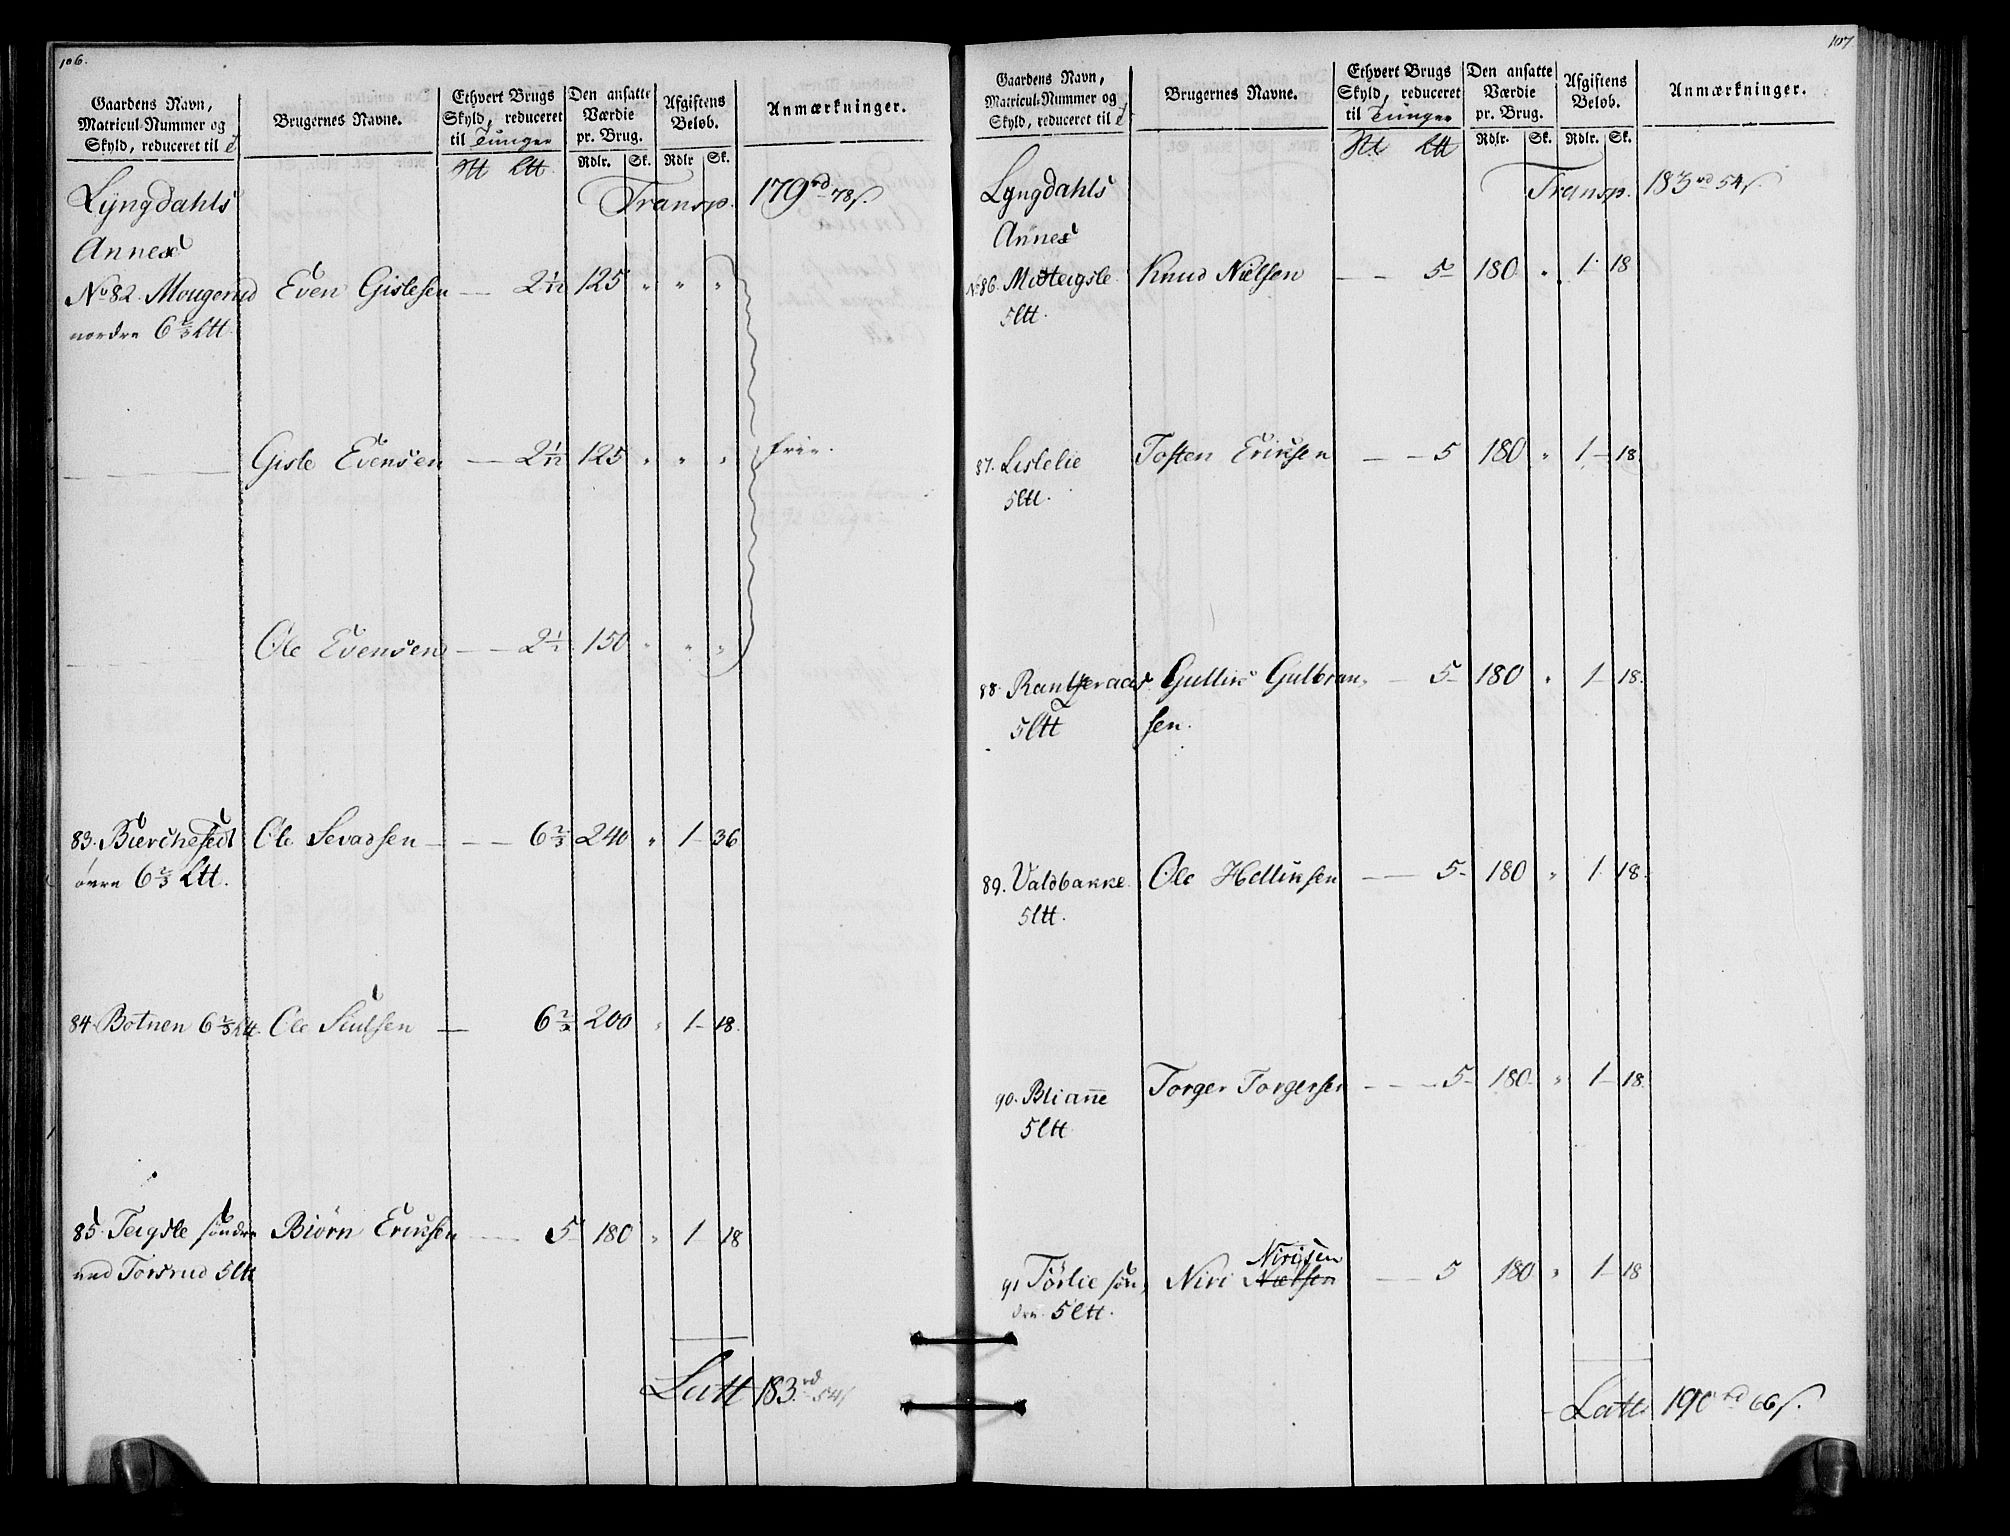 106.
Gaardens Navn, Matricul-Nummer og Skyld, reduceret til
Brugernes Navne.
Ethvert Brugs Skyld, reduceret til Tunger
Den ansatte Værdie pr. Brug.
Afgiftens Beløb.
Anmærkninger.
Rdlr. Sk. Rdlr Sk.
Lyngdahls Transp. 179 rd 78 s.
Annex
No 82. Mougerud Even Gislesen — 2 1/12 125 " " "
nordre 6 2/3 Ltt.
Gisle Evensen — 2 1/12 125 " " " frie.
Ole Evensen — — 150 " " "
83. Bierchesedt Ole Sevadsen — — — 6 2/3 240 " 1 — 36
øvre 6 2/3 Ltt.
84. Botnen 6 2/3 Ltt. Ole Siulsen — 6 2/3 200 " 1 — 18.
85. Teigsle søndre Biørn Erichsen — 5 180 " 1 — 18
med Torsrud 5 Ltt
Latt 183 rd 54 s
107
Gaardens Navn, Matricul-Nummer og Skyld, reduceret til
Brugernes Navne.
Ethvert Brugs Skyld, reduceret til Tunger
Den ansatte Værdie pr. Brug.
Afgiftens Beløb.
Anmærkninger.
Rdlr. Sk. Rdlr. Sk.
Lyngdahls Transp. 183 rd 54 s.
Annex
No 86. Midteigsle Knud Nielsen — — 5 — 180 " 1 18
5 Ltt.
87. Lislelie Tosten Eriksen — — 5 180 " 1 — 18
5 Ltt.
88. Gullik Gulbran, — 5 — 180 " 1 — 18.
5 Ltt sen.
89. Valdbakke Ole Helliksen — — 5 — 180 " 1 18.
5 Ltt.
90. Blianne Torger Torgersen — — — 5 — 180 " 1 — 18.
5 Ltt
Nirisen
91 Tørlie søn, Niri Nielsen — — 5 180 " 1 — 18
dre. 5 Ltt.
Latt 190 rd 66 s.